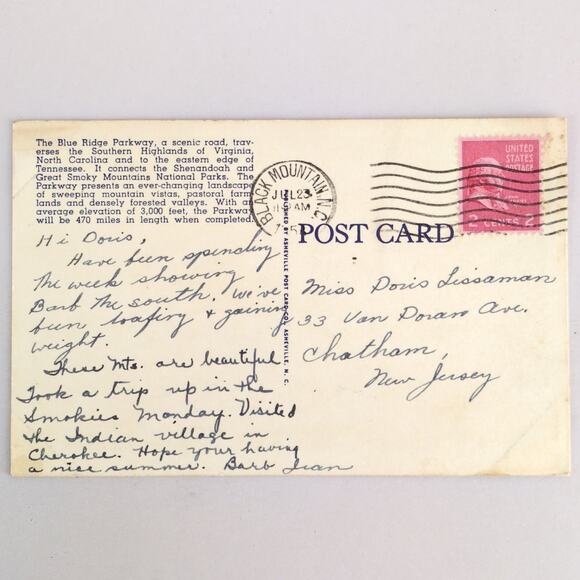 The Blue Ridge Parkway, a scenic road, trav-
erses the Southern Highlands of Virginia,
North Carolina and to the eastern edge of
Tennessee. It connects the Shenandoah and
Great Smoky Mountains National Parks. The
Parkway presents an ever-changing landscape
of sweeping mountain vistas, pastoral farm
lands and densely forested valleys. With an
average elevation of 3,000 feet, the Parkway
will be 470 miles in length when completed.
BLACK MOUNTAIN, N.C.
JUL 23
AM
UNITED
STATES
POSTAGE
2 CENTS 2
POST CARD
ASHEVILLE POST CARD CO., ASHEVILLE, N. C.
Hi Doris,
Have been spending
the week showing
Barb the South. We've
been loafing & gaining
weight.
These Mts. are beautiful
Took a trip up in the
Smokies Monday. Visited
the Indian village in
Cherokee. Hope your having
a nice summer. Barb Jean
Miss Doris Lissaman
33 Van Doran Ave.
Chatham,
New Jersey